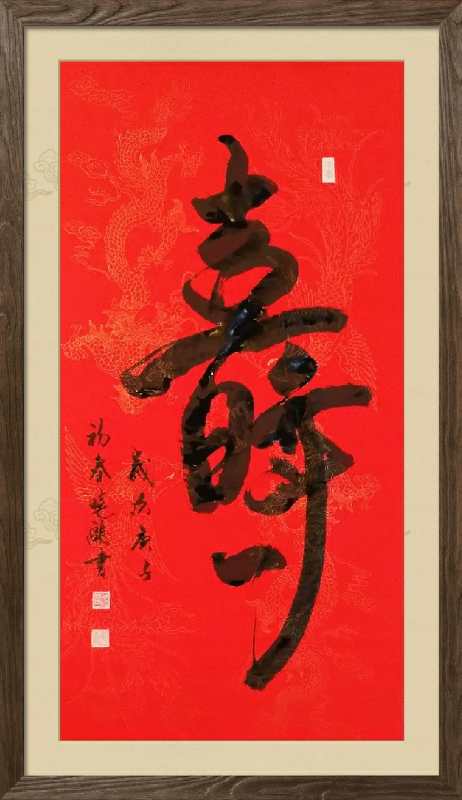 壽
歲次庚子
初春書